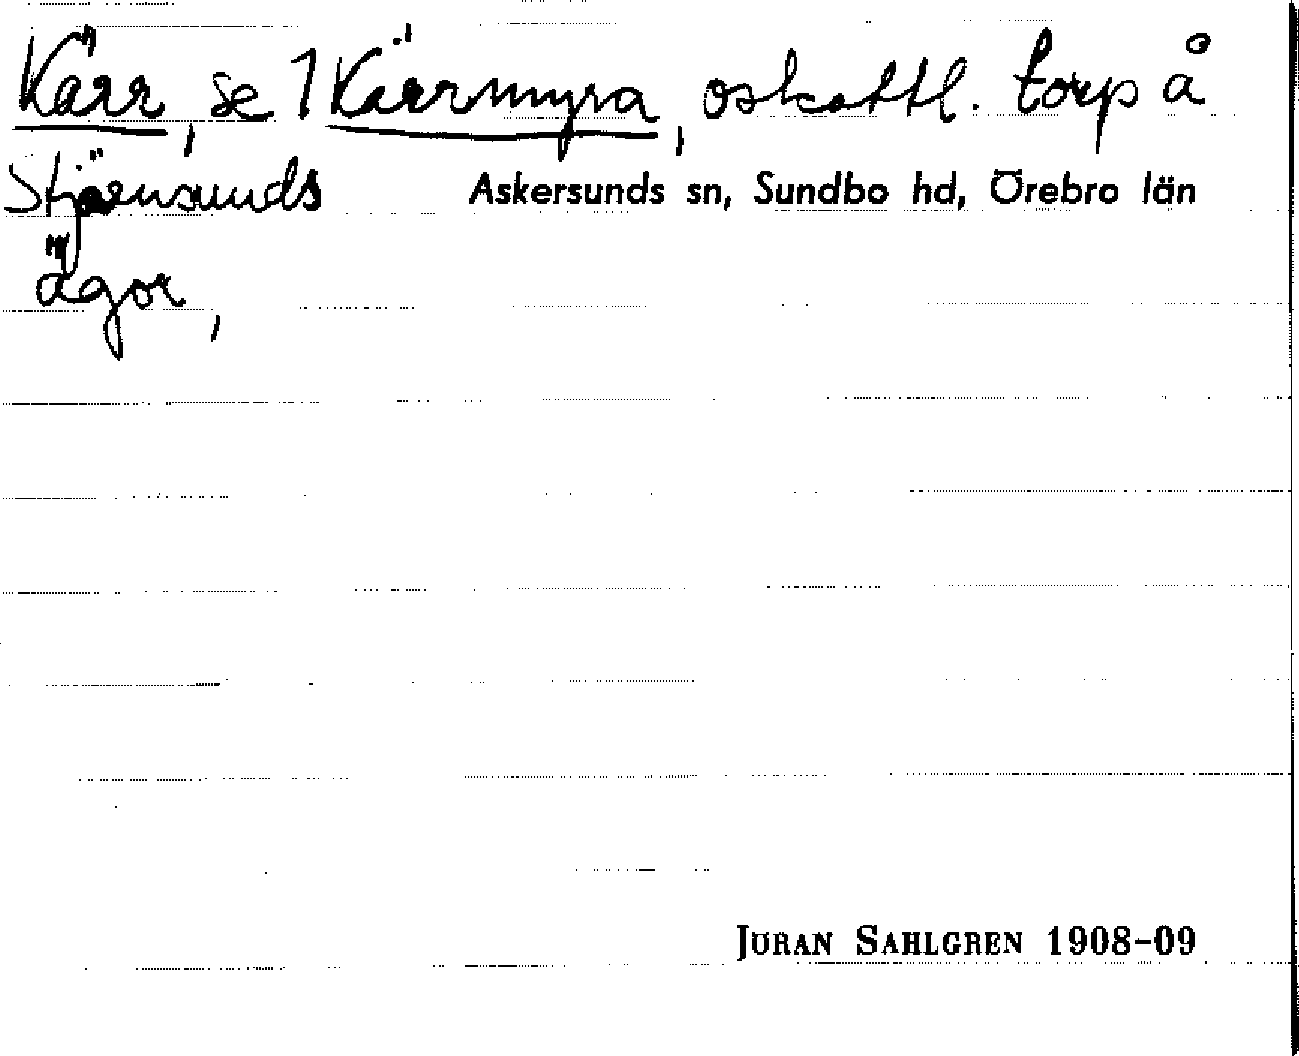 Kärr, se 1 Kärrmyra, oskattl. torp å
Stjärnsunds Askersunds sn, Sundbo hd, Örebro län
ägor,
JÖRAN SAHLGREN 1908-09